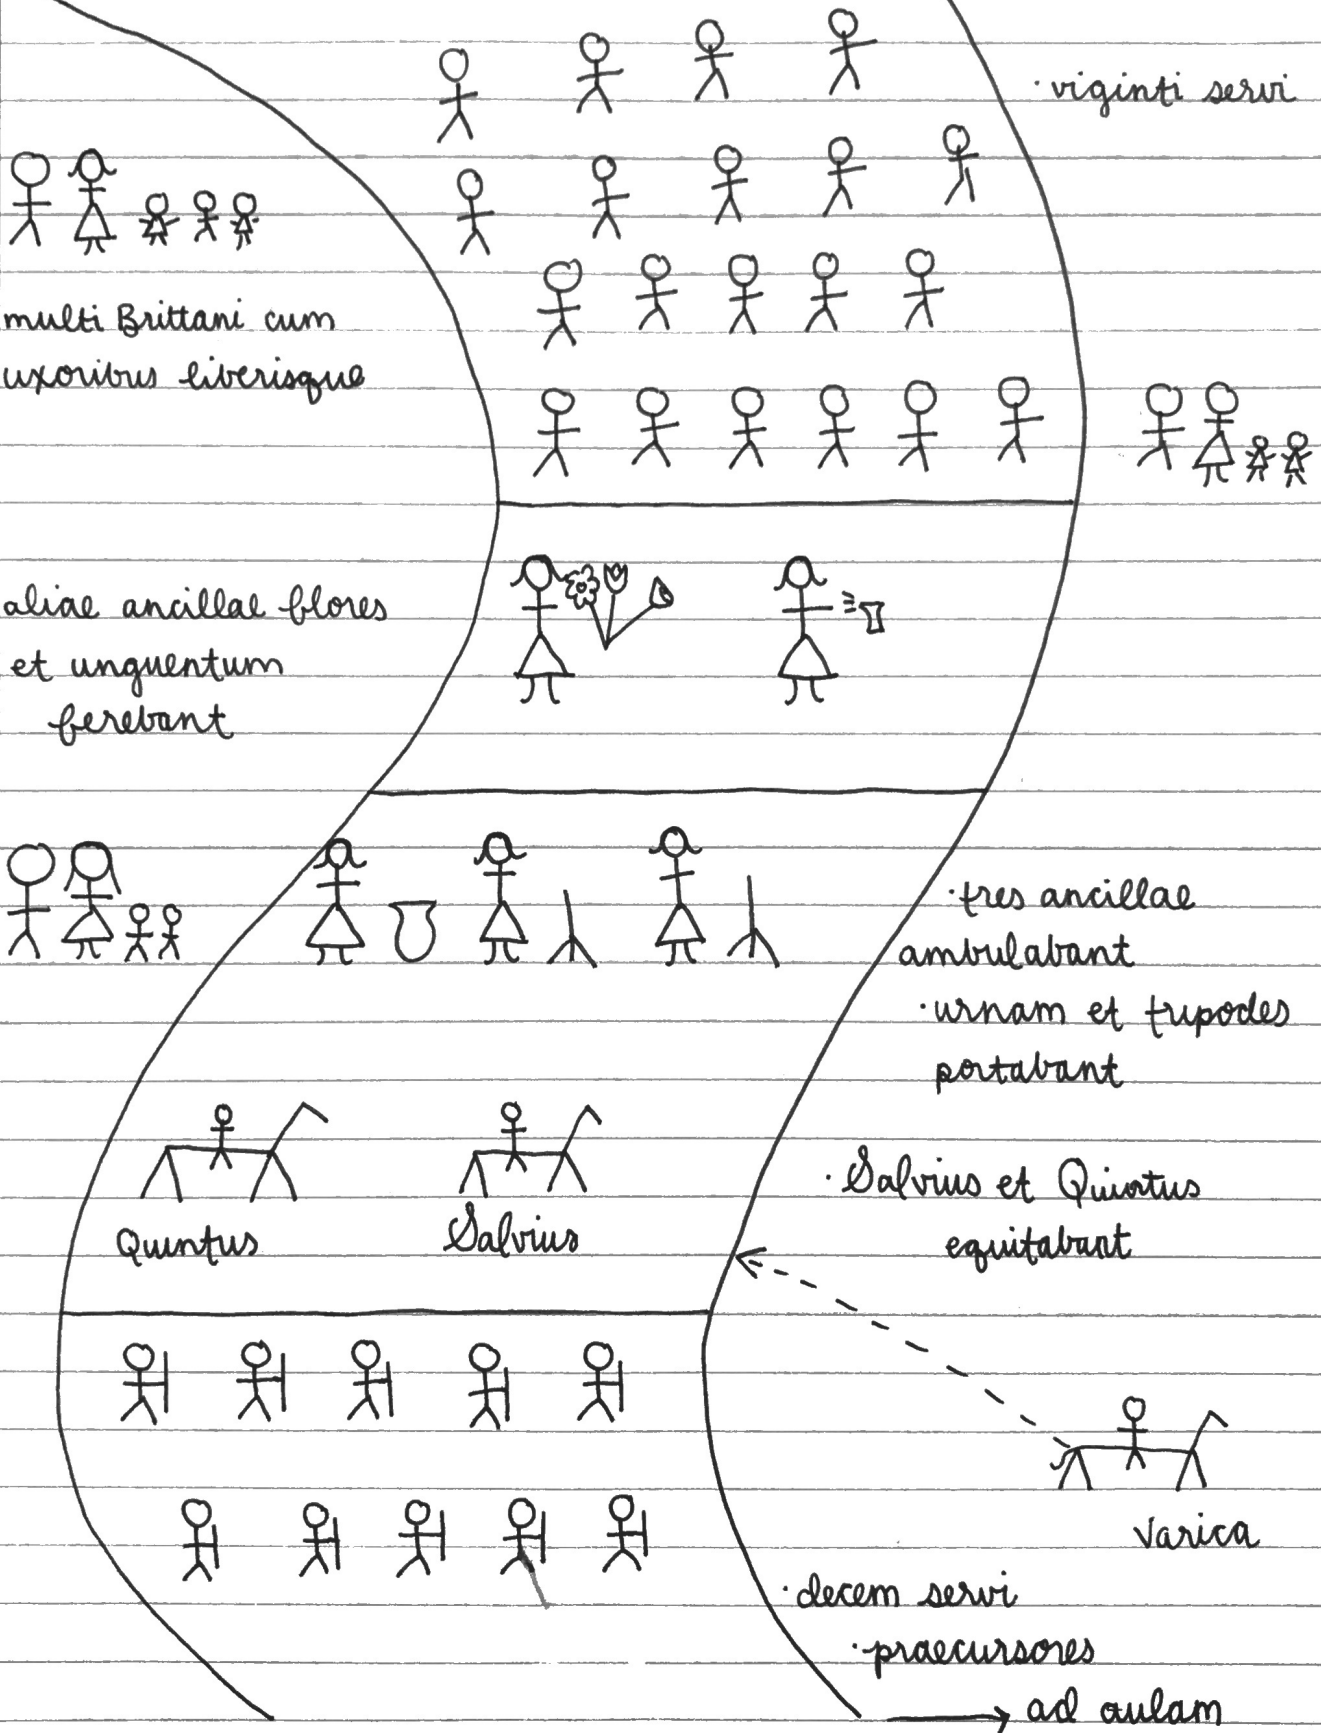 ·viginti servi
multi Brittani cum
uxoribus liberisque
aliae ancillae flores
et unguentum
ferebant
·tres ancillae
ambulabant
·urnam et tripodes
portabant
·Salvius et Quintus
equitabant
Quintus
Salvius
Varica
·decem servi
·praecursores
→ ad aulam